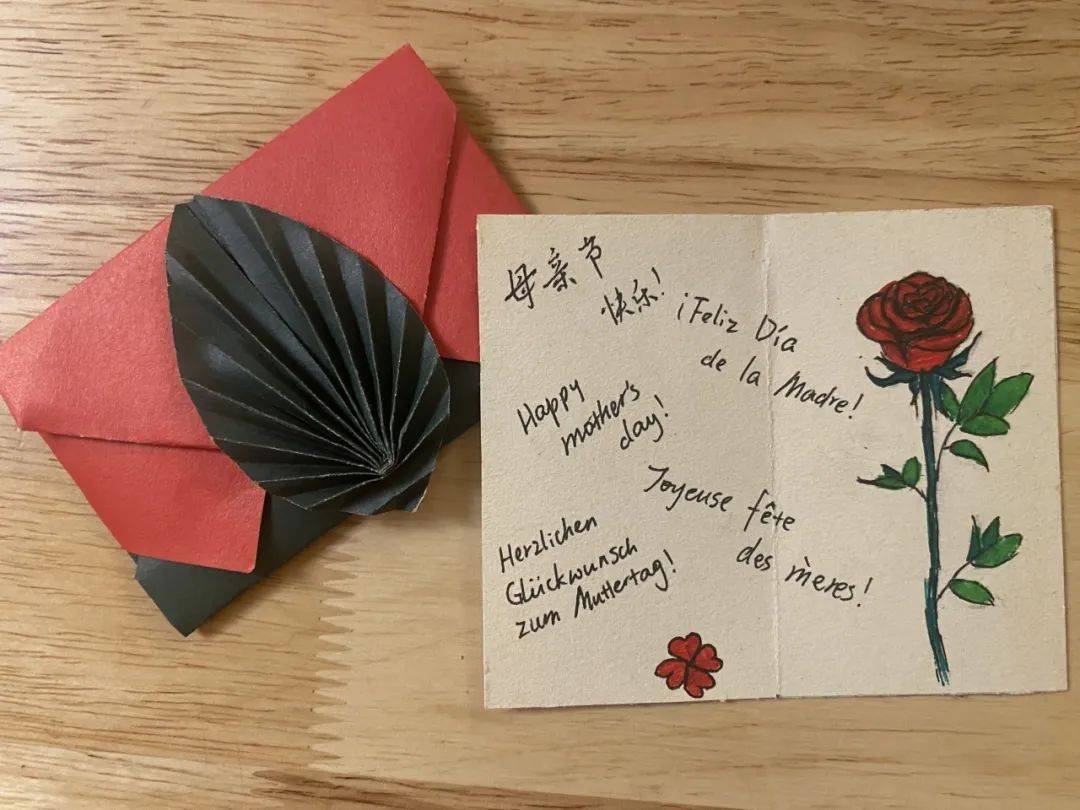 母亲节
快乐!
¡Feliz Día
de la Madre!
Happy
mother's
day!
Joyeuse fête
des mères!
Herzlichen
Glückwunsch
zum Muttertag!